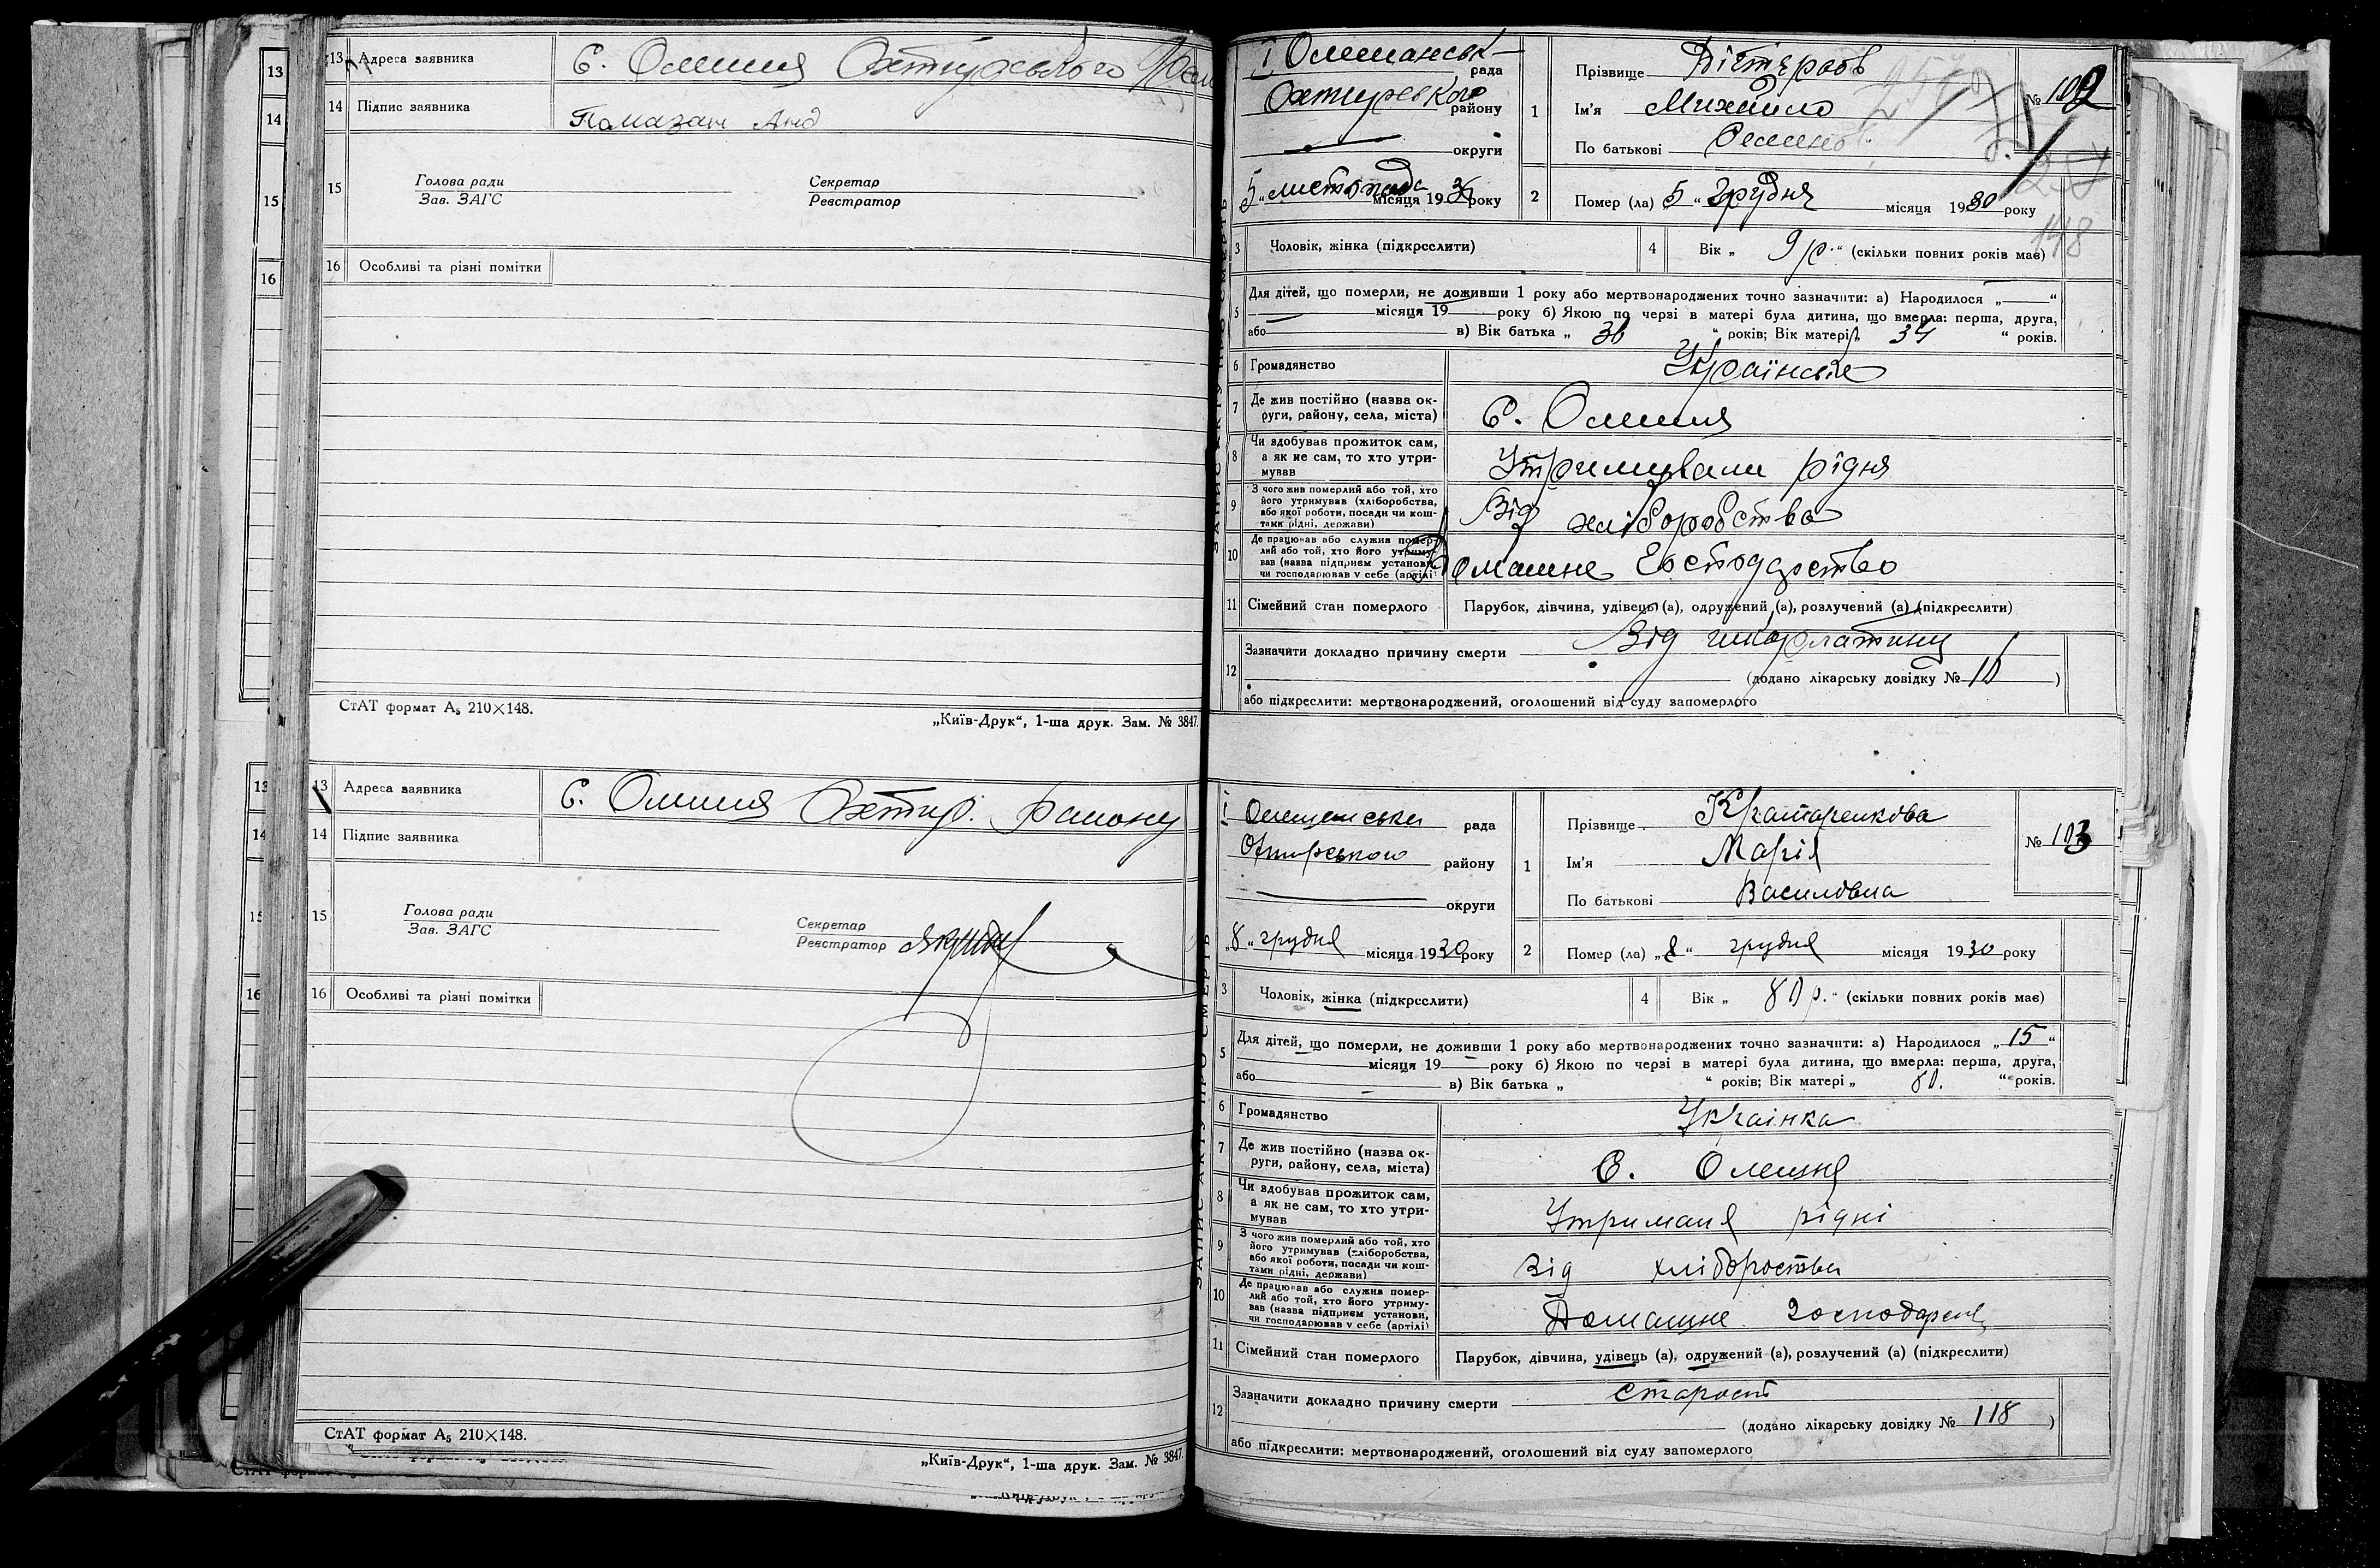 13 Адреса заявника С. Олешня Охтирського
14 Підпис заявника Помазан Анд
15 Голова ради
Зав. ЗАГС
Секретар
Реєстратор
16 Особливі та різні помітки
СтАТ формат А₅ 210×148.
„Київ-Друк“, 1-ша друк. Зам. № 3847.
13 Адреса заявника С. Олешня Охтир. району
14 Підпис заявника
15 Голова ради
Зав. ЗАГС
Секретар
Реєстратор
16 Особливі та різні помітки
СтАТ формат А₅ 210×148.
„Київ-Друк“, 1-ша друк. Зам. № 3847.
ЗАПИС АКТУ ПРО СМЕРТЬ
рада
Охтирського району
округи
5 „ листопада місяця 19 30 року
1 Прізвище
Ім'я Михайло
По батькові
№ 102
148
2 Помер (ла) 5 “ Грудня місяця 1930 року
3 Чоловік, жінка (підкреслити)
4 Вік „ 9 р. “ (скільки повних років має)
5 Для дітей, що померли, не доживши 1 року або мертвонароджених точно зазначити: а) Народилося „ “
місяця 19 року б) Якою по черзі в матері була дитина, що вмерла: перша, друга,
або в) Вік батька „ 36 “ років; Вік матері „ 34 “ років.
6 Громадянство
7 Де жив постійно (назва ок-
руги, району, села, міста) С. Олешня
8 Чи здобував прожиток сам,
а як не сам, то хто утри-
мував Утримували рідня
9 З чого жив померлий або той, хто
його утримував (хліборобства,
або якої роботи, посади чи кош-
тами рідні, держави) Від хліборобства
10 Де працював або служив помер-
лий або той, хто його утриму-
вав (назва підприєм установи,
чи господарював у себе (артілі) Домашне Господарство
11 Сімейний стан померлого Парубок, дівчина, удівець (а), одружений (а), розлучений (а) (підкреслити)
12 Зазначити докладно причину смерти Від шкарлатини
(додано лікарську довідку № 10 )
або підкреслити: мертвонароджений, оголошений від суду запомерлого
ЗАПИС АКТУ ПРО СМЕРТЬ
рада
Охтирського району
округи
„8“ грудня місяця 1930 року
1 Прізвище
Ім'я Марія
По батькові Василовна
№ 103
2 Помер (ла) „8“ грудня місяця 1930 року
3 Чоловік, жінка (підкреслити)
4 Вік „ 80 р. “ (скільки повних років має)
5 Для дітей, що померли, не доживши 1 року або мертвонароджених точно зазначити: а) Народилося „ 15 “
місяця 19 року б) Якою по черзі в матері була дитина, що вмерла: перша, друга,
або в) Вік батька „ “ років; Вік матері „ 80. “ років.
6 Громадянство Українка
7 Де жив постійно (назва ок-
руги, району, села, міста) С. Олешня
8 Чи здобував прожиток сам,
а як не сам, то хто утри-
мував Утриманя рідні
9 З чого жив померлий або той, хто
його утримував (хліборобства,
або якої роботи, посади чи кош-
тами рідні, держави) Від
10 Де працював або служив помер-
лий або той, хто його утриму-
вав (назва підприєм установи,
чи господарював у себе (артілі) Домашне
11 Сімейний стан померлого Парубок, дівчина, удівець (а), одружений (а), розлучений (а) (підкреслити)
12 Зазначити докладно причину смерти
(додано лікарську довідку № 118 )
або підкреслити: мертвонароджений, оголошений від суду запомерлого